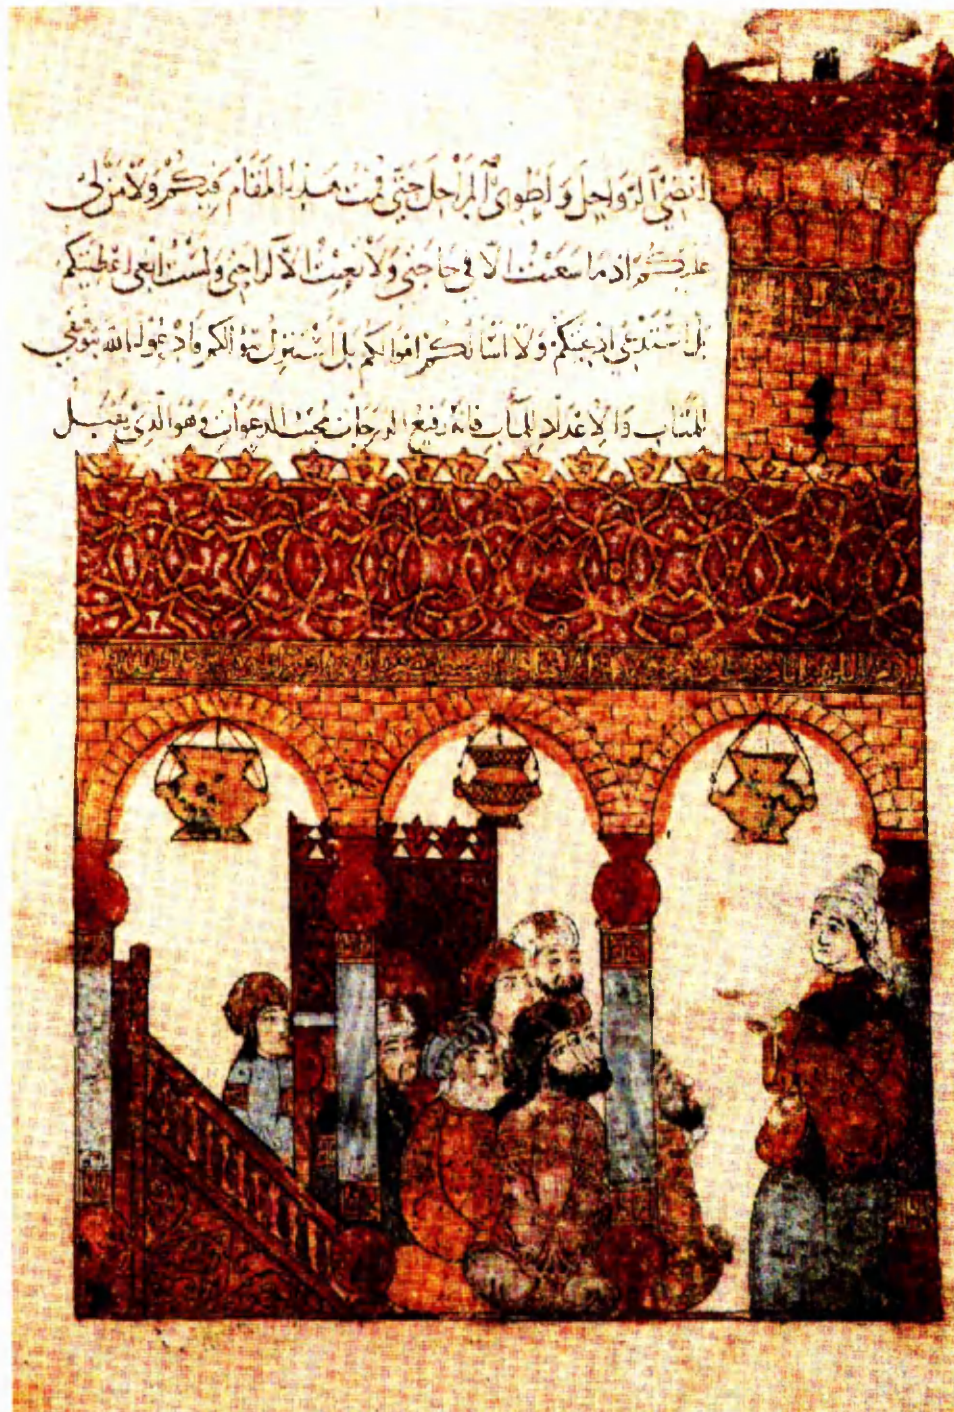 انضي الرواحل واطوي المراحل حتى قمت هذا المقام فيكم ولا من لي
عليكم اذ ما سعيت الا في حاجتي ولا تعبت الا لراحتي ولست ابغي اعطيتكم
بل استدعي ادعيتكم ولا اسالكم اموالكم بل استنزل سؤالكم فادعوا الله بتوفيقي
للمتاب والاعداد للمآب فانه رفيع الدرجات مجيب الدعوات وهو الذي يقبل